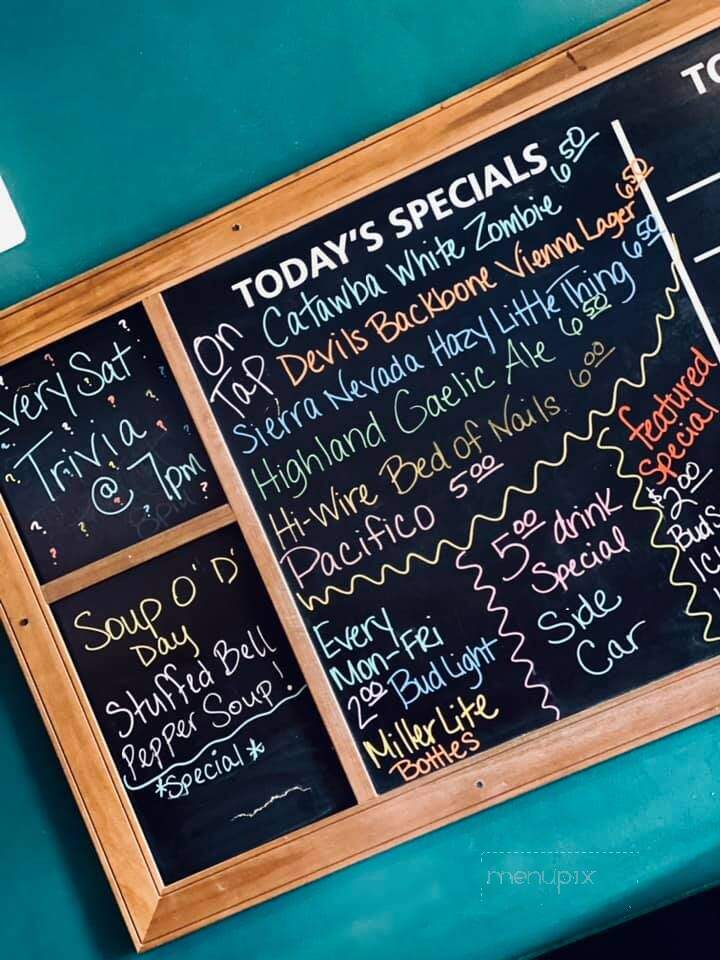 very Sat
Trivia
@ 7pm
Soup O' D'
Day
Stuffed Bell
Pepper Soup!
*Special*
TODAY'S SPECIALS
On
Tap
Catawba White Zombie 6 50
Devils Backbone Vienna Lager 6 50
Sierra Nevada Hazy Little Thing 6 50
Highland Gaelic Ale 6 50
Hi-Wire Bed of Nails 6 00
Pacifico 5 00
Every
Mon-Fri
2 00 Bud Light
Miller Lite
Bottles
5 00 drink
Special
Side
Car
featured
Special
$2 00
Bud
TO
menupix